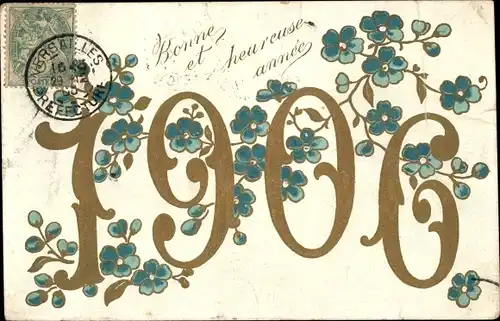 VERSAILLES
PREFECTURE
Bonne
et heureuse
année
1906